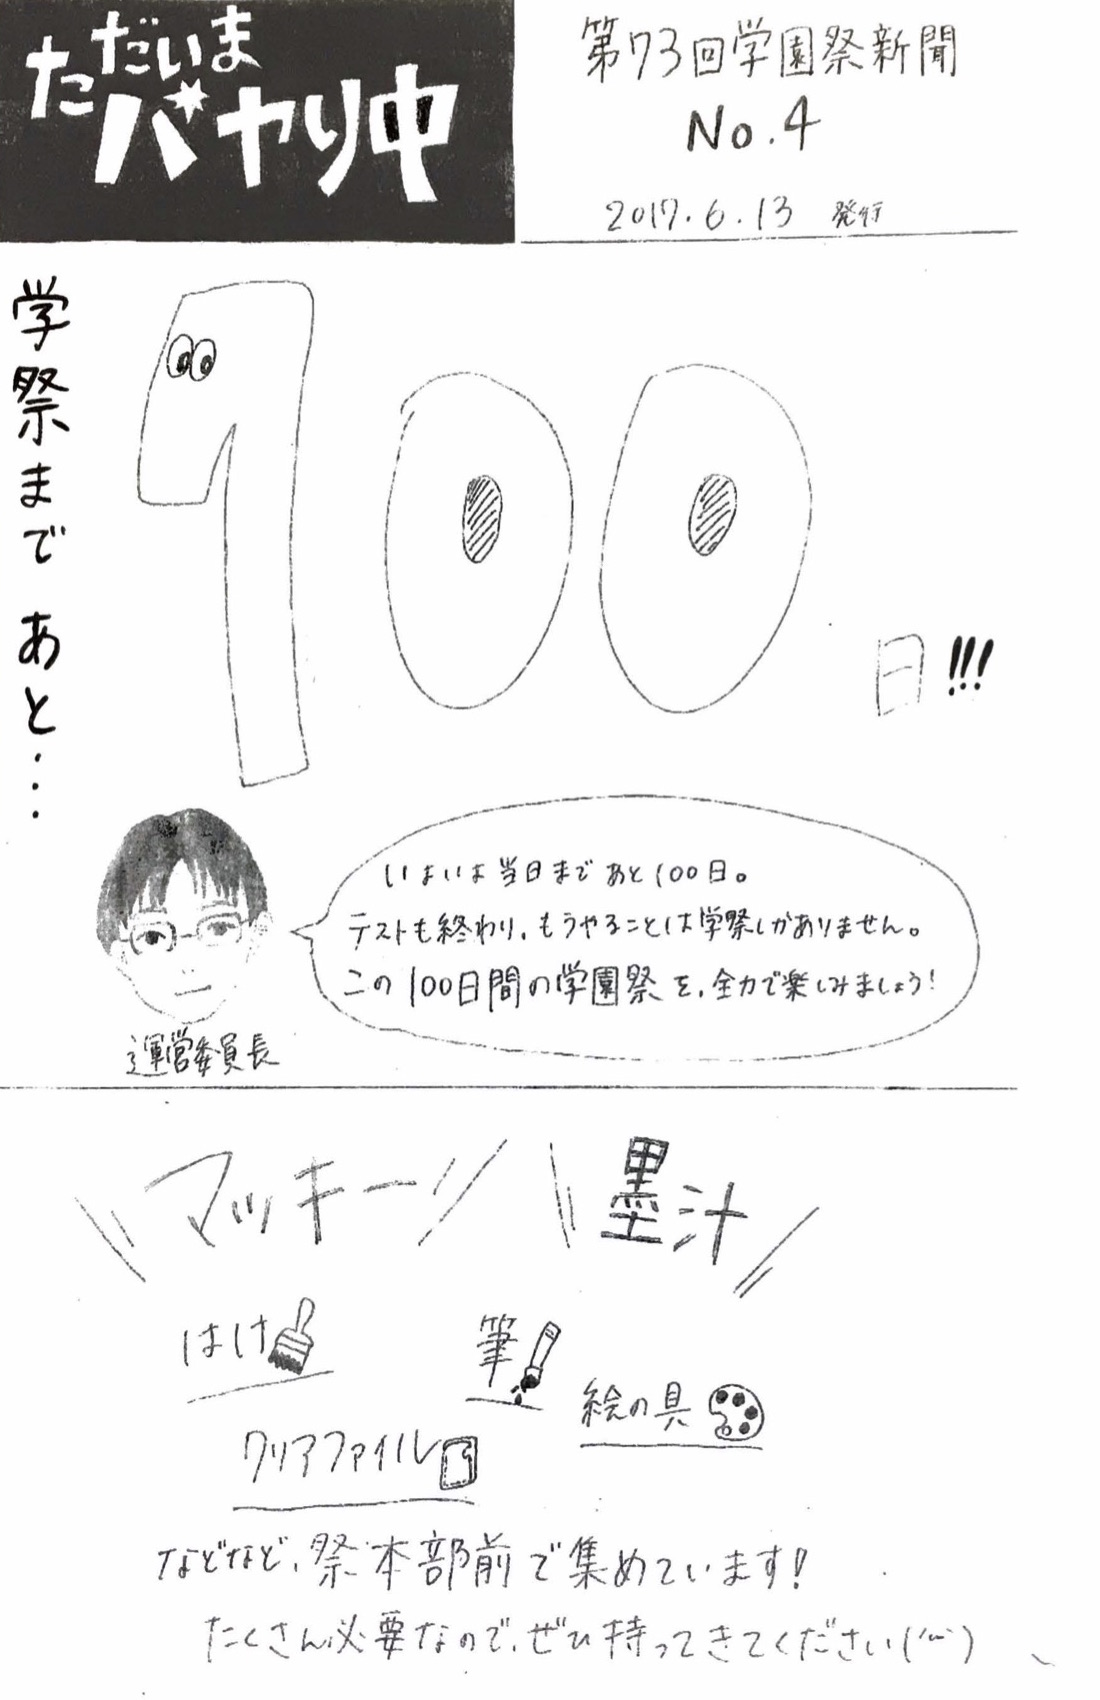 ただいま
バヤリ中
第73回学園祭新聞
No.4
2017.6.13 発行
学祭まで あと…
100
日!!!
いよいよ当日まであと100日。
テストも終わり、もうやることは学祭しかありません。
この100日間の学園祭を、全力で楽しみましょう!
運営委員長
マッキー
墨汁
はけ
筆
絵の具
クリアファイル
などなど、祭本部前で集めています!
たくさん必要なので、ぜひ持ってきてください(^^)